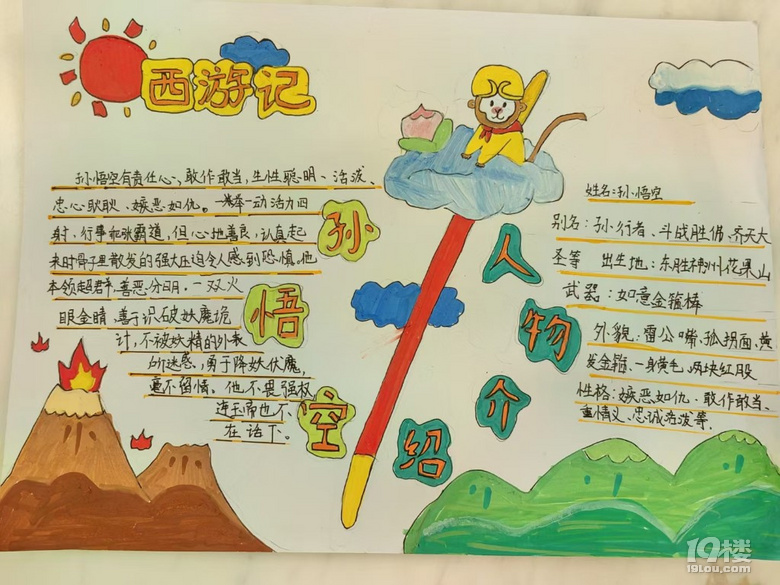 西游记
孙悟空有责任心、敢作敢当,生性聪明、活泼、
忠心耿耿、嫉恶如仇。一举一动活力四
射,行事和张霸道,但心地善良,认真起
来时骨子里散发的强大压迫令人感到恐慌。他
本领超群,善恶分明。一双火
眼金睛、善于识破妖魔诡
计,不被妖精的外表
所迷惑,勇于降妖伏魔,
毫不留情。他不畏强权
连玉帝也不
在话下。
孙
悟
空
人
物
介
绍
姓名:孙悟空
别名:孙行者、斗战胜佛、齐天大
圣等 出生地:东胜神州花果山
武器:如意金箍棒
外貌:雷公嘴,孤拐面,黄
发金箍、一身黄毛,两块红股
性格:嫉恶如仇、敢作敢当、
重情义、忠诚活泼等.
19楼
19lou.com